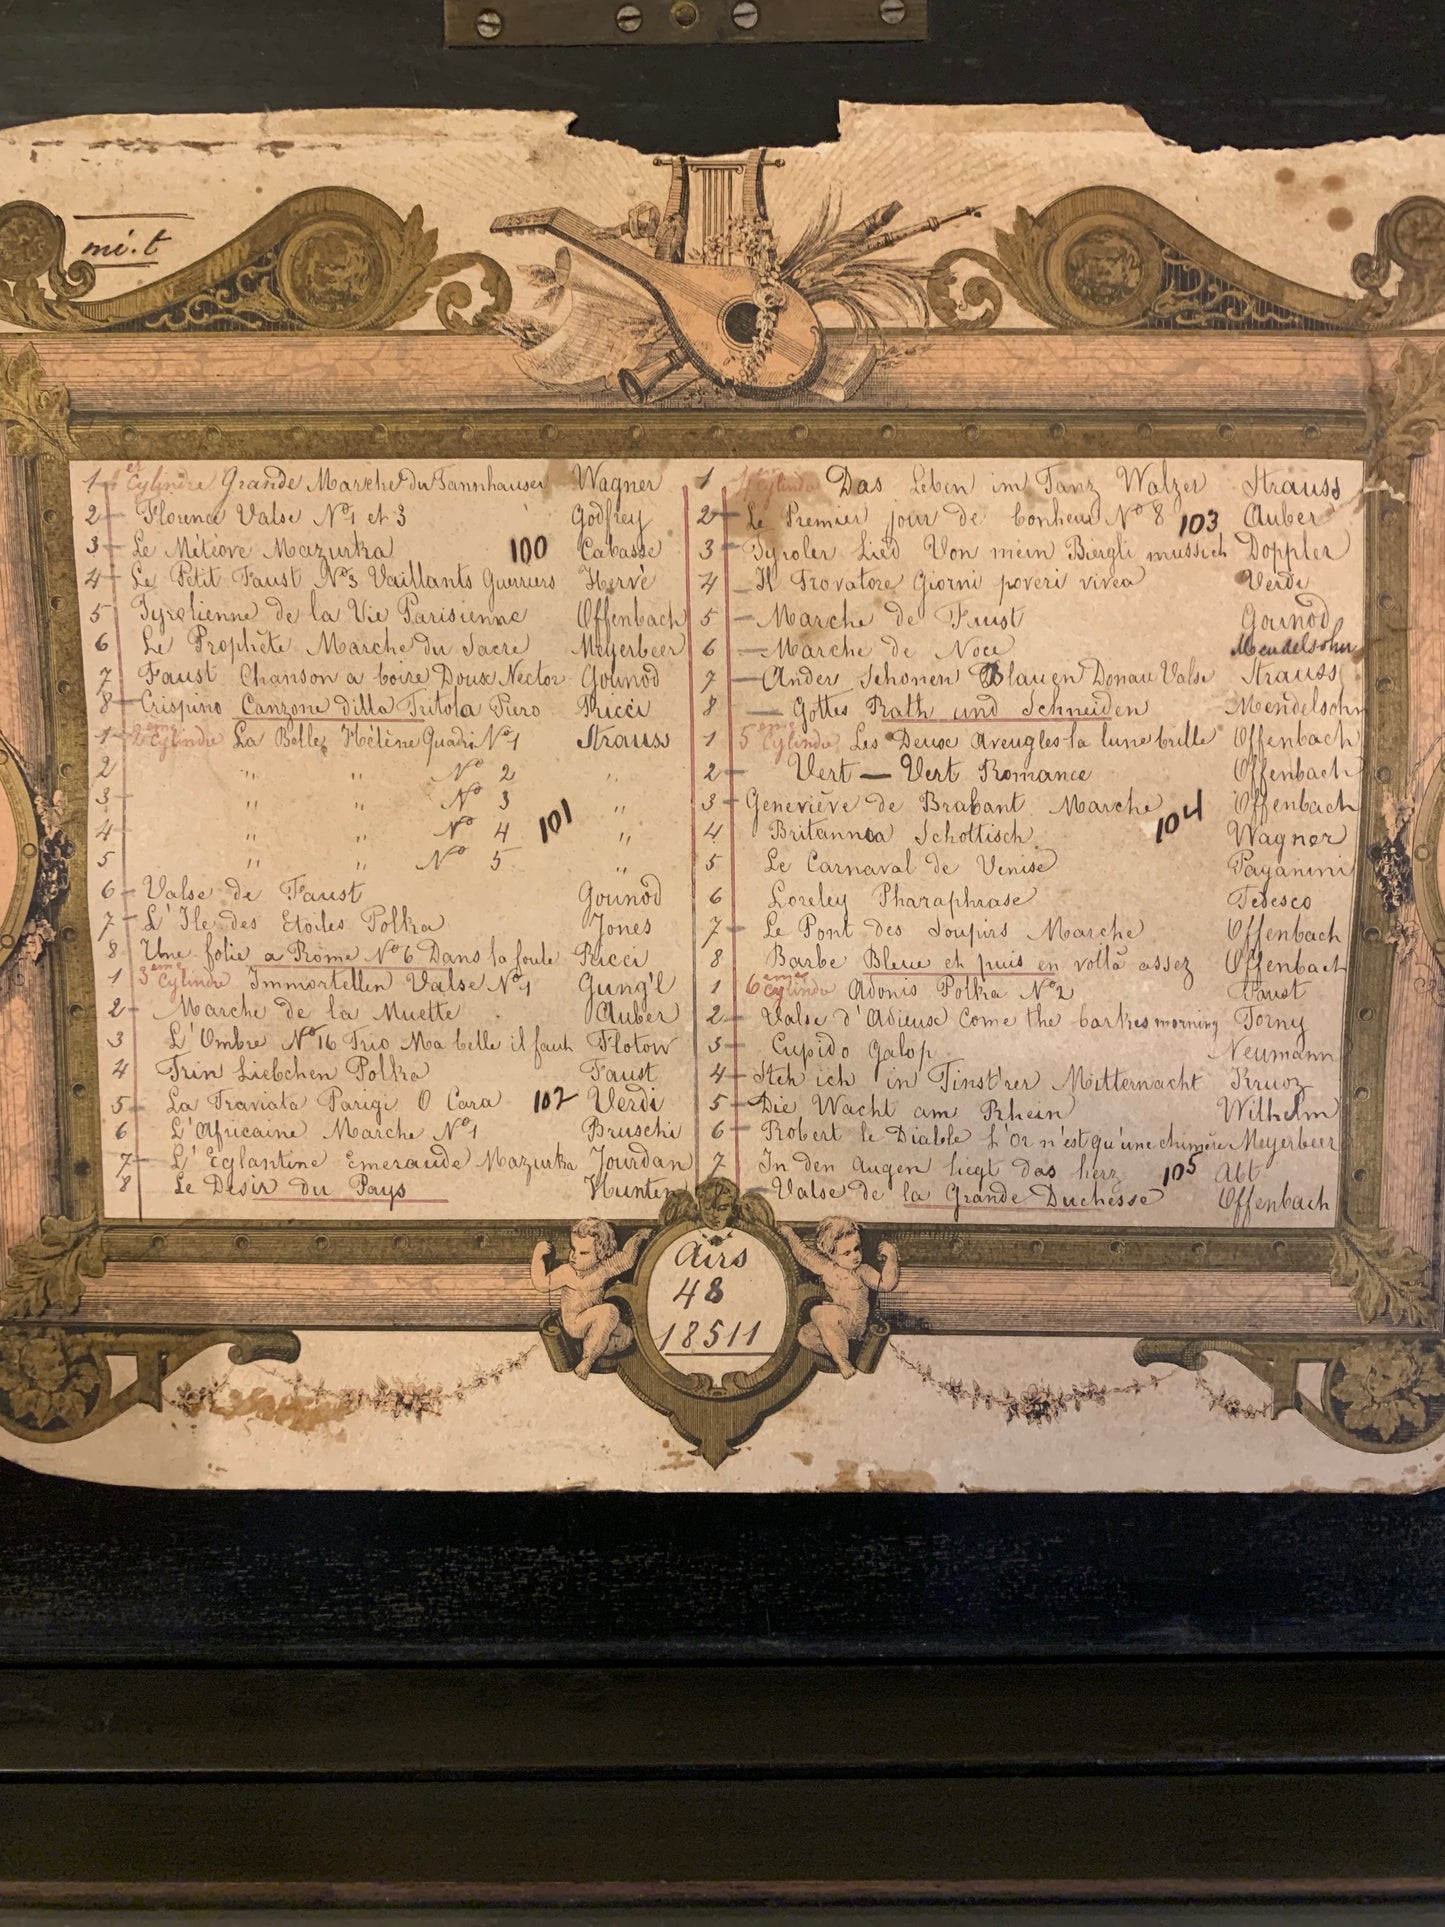 mi.t
1 1er Cylindre Grande Marche du Tannhauser Wagner
2 Florence Valse No 1 et 3 Godfrey
3 Le Météore Mazurka 100 Cabasse
4 Le Petit Faust No 3 Vaillants Guerriers Hervé
5 Tyrolienne de la Vie Parisienne Offenbach
6 Le Prophète Marche du Sacre Meyerbeer
7 Faust Chanson a boire Doux Nector Gounod
8 Crispino Canzone dilla Fritola Piero Ricci
1 2eme Cylindre La Belle Hélène Quadri No 1 Strauss
2 " " No 2 "
3 " " No 3 "
4 " " No 4 101 "
5 " " No 5 "
6 Valse de Faust Gounod
7 L'Ile des Etoiles Polka Jones
8 Une folie a Rome No 6 Dans la foule Ricci
1 3eme Cylindre Immortellen Valse No 1 Gung'l
2 Marche de la Muette Auber
3 L'Ombre No 16 Trio Ma belle il faut Flotow
4 Trin Liebchen Polka Faust
5 La Traviata Parigi O Cara 102 Verdi
6 L'Africaine Marche No 1 Bruschi
7 L'Eglantine Emeraude Mazurka Jourdan
8 Le Desir du Pays Hunten
1 Cylindre Das Leben im Tanz Walzer Strauss
2 Le Premier jour de bonheur No 8 103 Auber
3 Tyroler Lied Von mein Biergli mussich Doppler
4 Il Trovatore Giorni poveri vivea Verdi
5 Marche de Faust Gounod
6 Marche de Noce Mendelsohn
7 Ander Schonen Blauen Donau Valse Strauss
8 Gottes Rath und Schneiden Mendelsohn
1 5eme Cylindre Les Deux Aveugles la lune brille Offenbach
2 Vert — Vert Romance Offenbach
3 Geneviève de Brabant Marche Offenbach
4 Britannia Schottisch 104 Wagner
5 Le Carnaval de Venise Paganini
6 Loreley Pharaphrase Tedesco
7 Le Pont des Soupirs Marche Offenbach
8 Barbe Bleue et puis en voilà assez Offenbach
1 6eme Cylindre Adonis Polka No 2 Faust
2 Valse d'Adieux Come the barkes morning Torny
3 Cupido Galop Neumann
4 Steh ich in Finst'rer Mitternacht
5 Die Wacht am Rhein Wilhelm
6 Robert le Diable L'or n'est qu'une chimère Meyerbeer
7 In den Augen liegt das herz 105 Abt
Valse de la Grande Duchesse Offenbach
Airs
48
18511